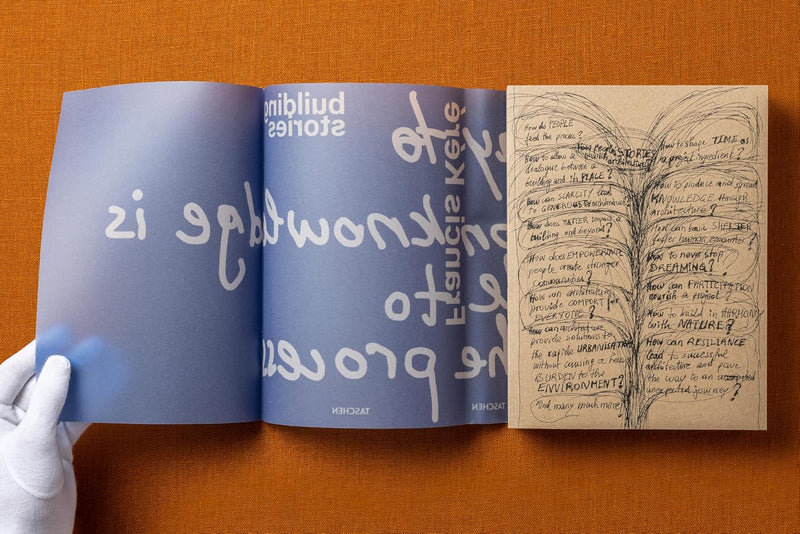 building
stories
Francis Kéré
to
knowledge is
to
the process
TASCHEN
TASCHEN
How do PEOPLE
feed the process?
How to allow a
dialogue between a
building and its PLACE?
How can SCARCITY lead
to GENEROUS architecture?
How does MATTER impact a
building and beyond?
How does EMPOWERING
people create stronger
Communities?
How can architecture
provide COMFORT for
EVERYONE?
How can architecture
provide solutions to
the rapid URBANISATION
without causing a heavy
BURDEN to the
ENVIRONMENT?
And many much more
STORIES
How to shape TIME as
a project ingredient?
How to produce and spread
KNOWLEDGE through
architecture?
How can basic SHELTER
foster human encounter?
How to never stop
DREAMING?
How can PARTICIPATION
nourish a project?
How to build in HARMONY
with NATURE?
How can RESILIANCE
lead to successful
architecture and pave
the way to an
unexpected journey?